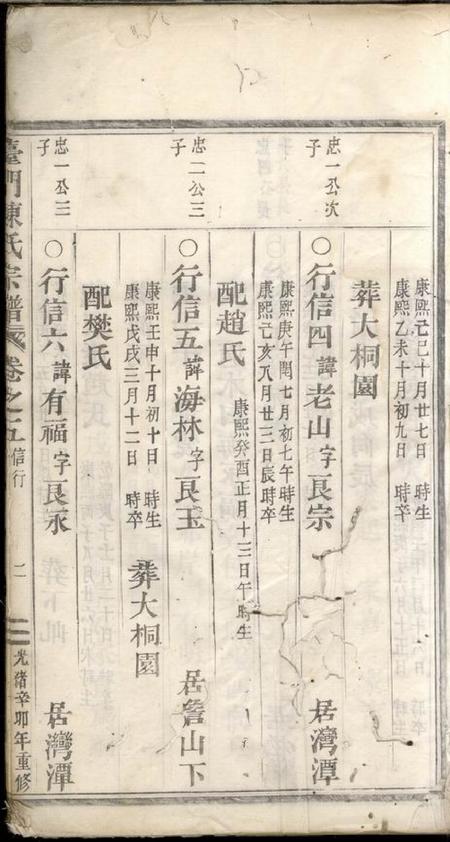 康熙己巳十月廿七日 時生
康熙乙未十月初九日 時卒
葬大桐園
忠一公次子
○行信四諱老山字良宗 居灣潭
康熙庚午閏七月初七午時生
康熙己亥八月廿三日辰時卒
配趙氏 康熙癸酉正月十三日午時生
忠二公三子
○行信五諱海林字良玉 居詹山下
康熙壬申十月初十日 時生
康熙戊戌三月十二日 時卒
葬大桐園
配樊氏
忠一公三子
○行信六諱有福字良永 居灣潭
臺門陳氏宗譜 卷之五 信行 二 光緒辛卯年重修